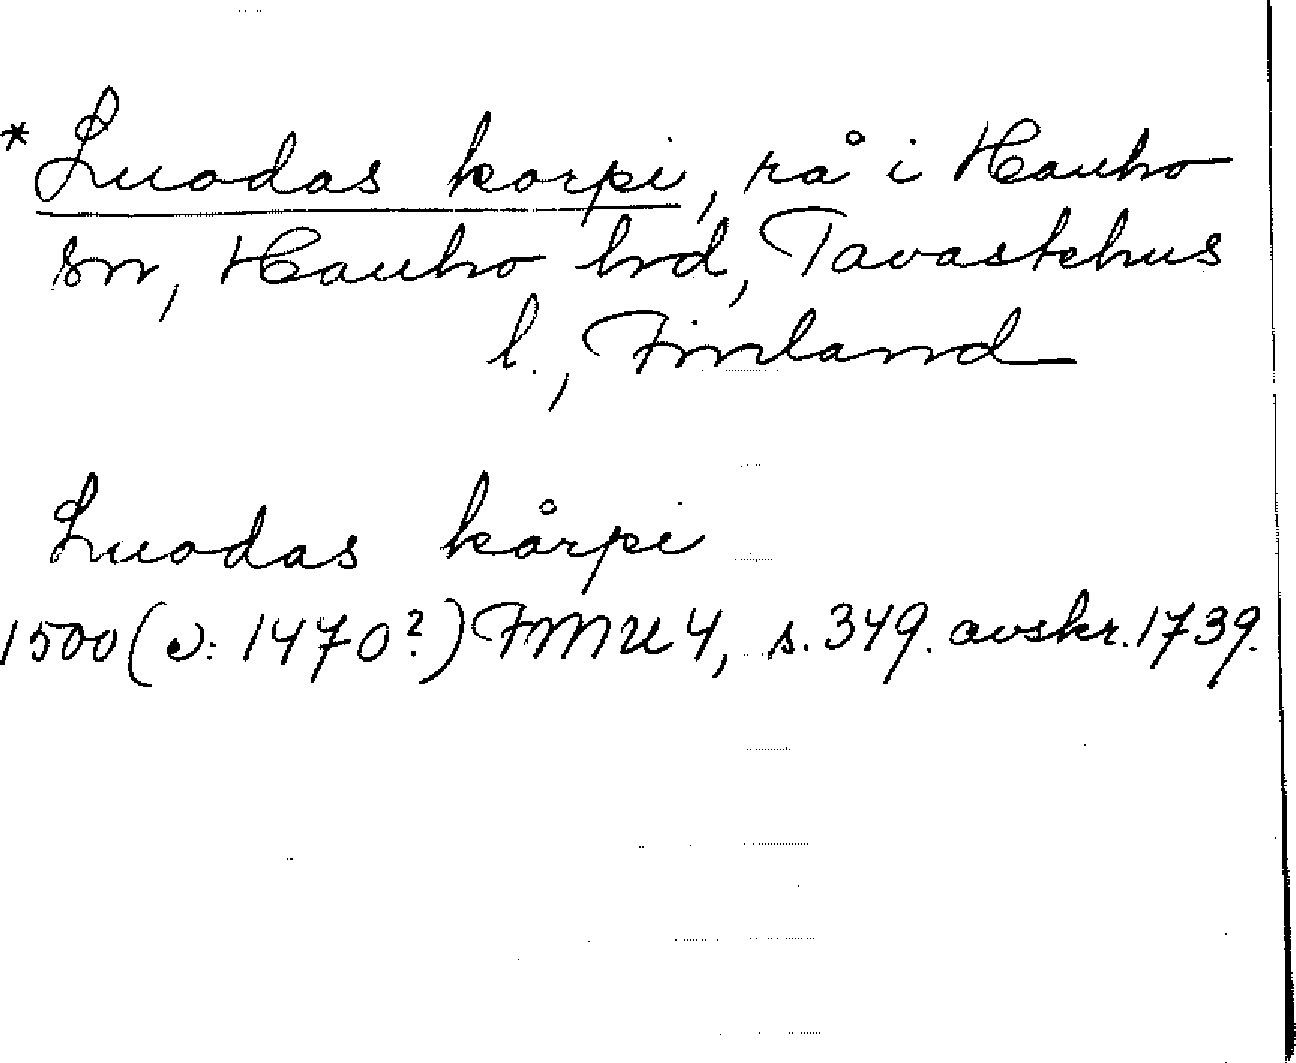 *Luodas korpi, rå i Hauho
sn, Hauho hd, Tavastehus
l., Finland
Luodas kårpi
1500 (ɔ: 1470?) FMU 4, s. 349. avskr. 1739.